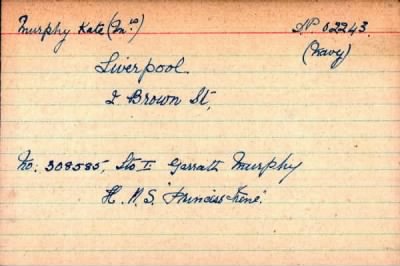 Murphy Kate (Mrs) NP 02243
(Navy)
Liverpool.
2 Brown St,
No: 308585, Sto I Garratt Murphy
H.M.S. "Princess Irene".